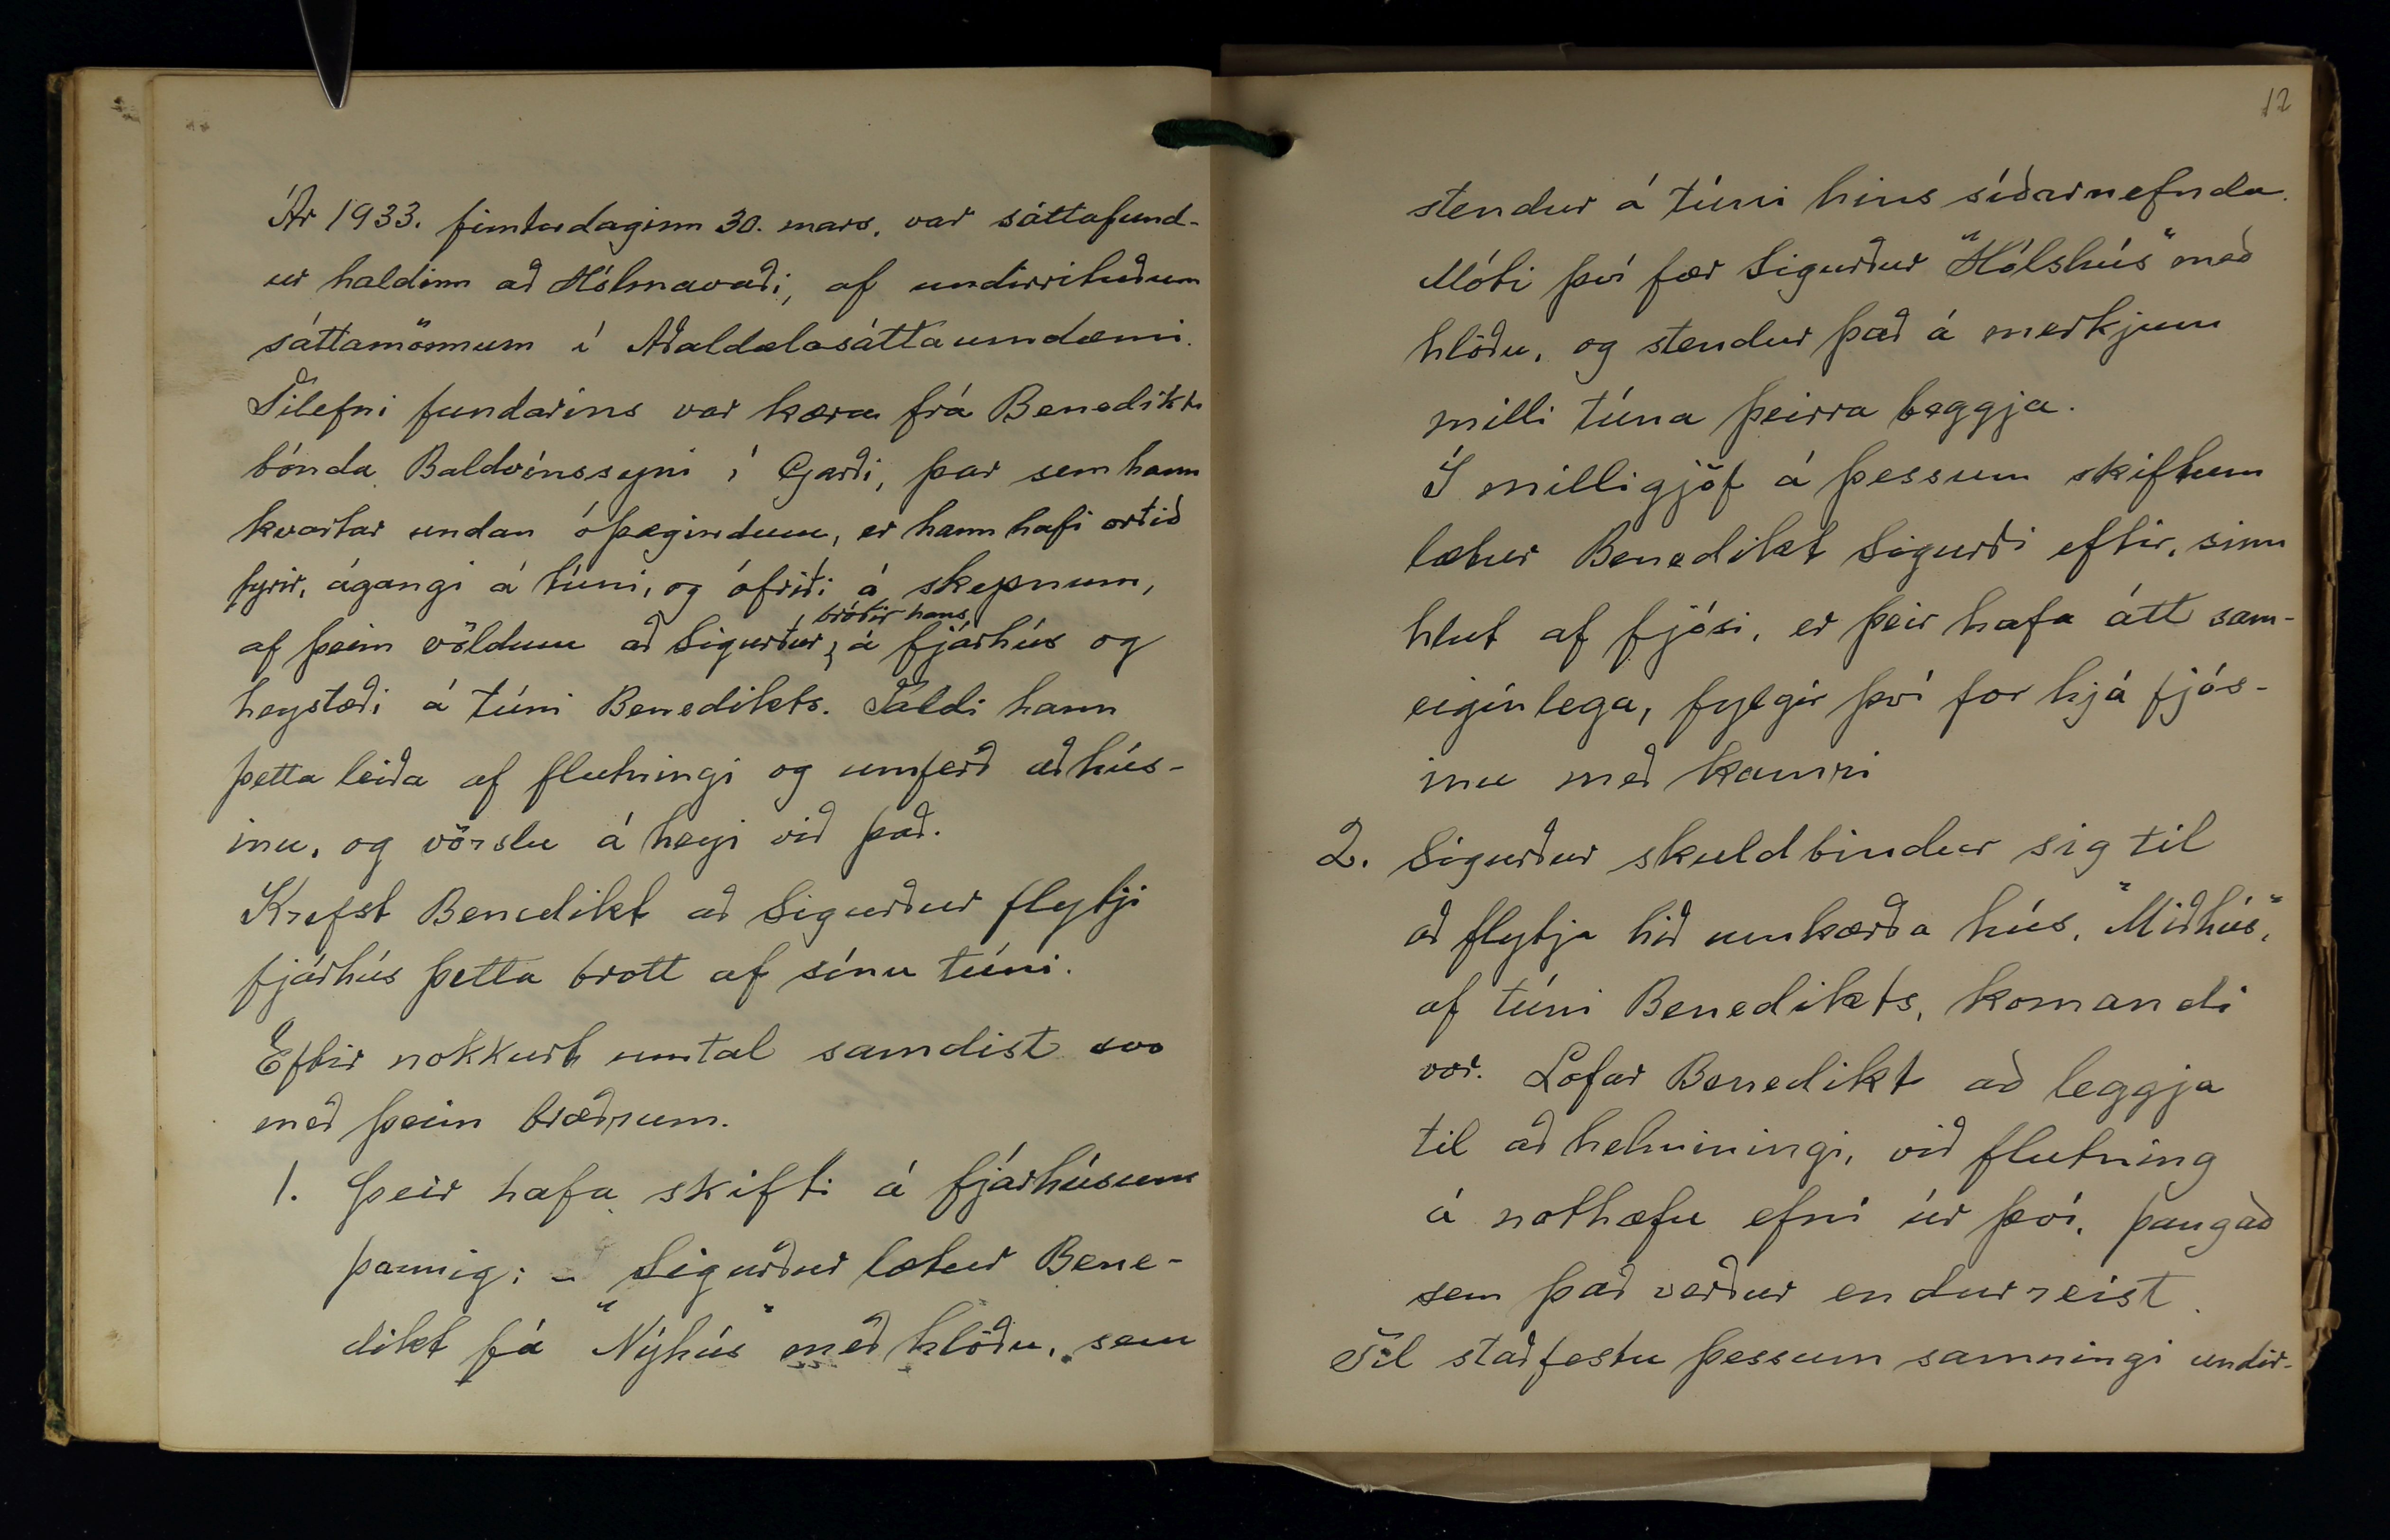 Ár 1933. fimtudaginn 30. mars. var sáttafund-
ur haldinn að Hólmavaði, af undirrituðum
sáttamönnum í Aðaldælasáttaumdæmi.
Tilefni fundarins var kæra frá Benedikt
bónda Baldvinssyni í Garði, þar sem hann
kvartar undan óþægindum, er hann hafi orðið
fyrir, ágangi á túni, og ófriði á skepnum,
bróðir hans
af þeim völdum að Sigurður, á fjárhús og
heystæði á túni Benedikts. Taldi hann
þetta leiða af flutningi og umferð að hús-
inu, og vörslu á heyi við það.
Krefst Benedikt að Sigurður flytji
fjárhús þetta brott af sínu túni.
Eftir nokkurt umtal samdist svo
með þeim bræðrum.
1. Þeir hafa skifti á fjárhúsum
þannig: - Sigurður lætur Bene-
dikt fá "Nýhús" með hlöðu, sem
12
stendur á túni hins síðarnefnda.
Móti því fær Sigurður "Hólshús" með
hlöðu, og stendur það á merkjum
milli túna þeirra beggja.
Í milligjöf á þessum skiftum
lætur Benedikt Sigurði eftir, sinn
hlut af fjósi, er þeir hafa átt sam-
eiginlega, fylgir því for hjá fjós-
inu með kamri
2. Sigurður skuldbindur sig til
að flytja hið umkærða hús, "Miðhús",
af túni Benedikts, komandi
vor. Lofar Benedikt að leggja
til að helmingi, við flutning
á nothæfu efni úr því, þangað
sem það verður endurreist.
Til staðfestu þessum samningi undir-